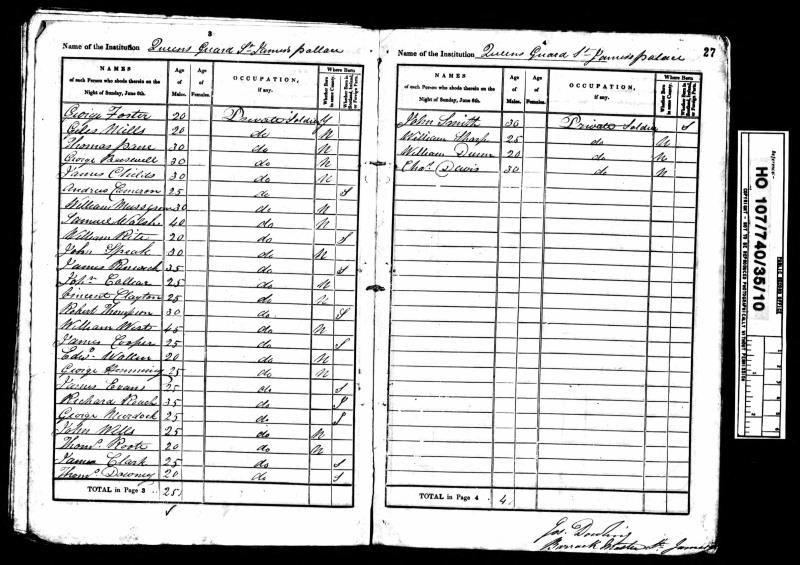 3
Name of the Institution Queens Guard St James's pallace
NAMES of each Person who abode therein on the Night of Sunday, June 6th.
Age of Males.
Age of Females.
OCCUPATION, if any.
Where Born
Whether Born in same County.
Whether Born in Scotland, Ireland, or Foreign Parts.
George Foster 20 Private Soldier Y
Giles Mills 20 do N
Thomas 30 do N
George 30 do N
James Childs 30 do N
Andrew Cameron 25 do S
William 30 do N
Samuel Walshe 40 do N
William 20 do S
John Speak 30 do N
James 35 do S
25 do N
Vincent Clayton 25 do N
Robert Thompson 30 do S
William West 45 do N
James Cooper 25 do S
Edwd. Wallen 20 do N
George Hemming 25 do N
James Evans 25 do S
Richard Roach 35 do S
George Murdock 25 do S
John Wells 25 do N
Thoms. Roote 20 do N
James Clark 25 do S
Thoms. Downey 20 do S
TOTAL in Page 3 .. 25
4
27
Name of the Institution Queens Guard St James's palace
NAMES of each Person who abode therein on the Night of Sunday, June 6th.
Age of Males.
Age of Females.
OCCUPATION, if any.
Where Born
Whether Born in same County.
Whether Born in Scotland, Ireland, or Foreign Parts.
John Smith 30 Private Soldier S
William Sharp 25 do N
William Dunn 20 do N
Thos. Davis 30 do N
TOTAL in Page 4 .. 4
Jas. Dowling
Barrack Master St. James's
Reference:-
HO 107/740/35/10
COPYRIGHT - NOT TO BE REPRODUCED PHOTOGRAPHICALLY WITHOUT PERMISSION
PUBLIC RECORD OFFICE